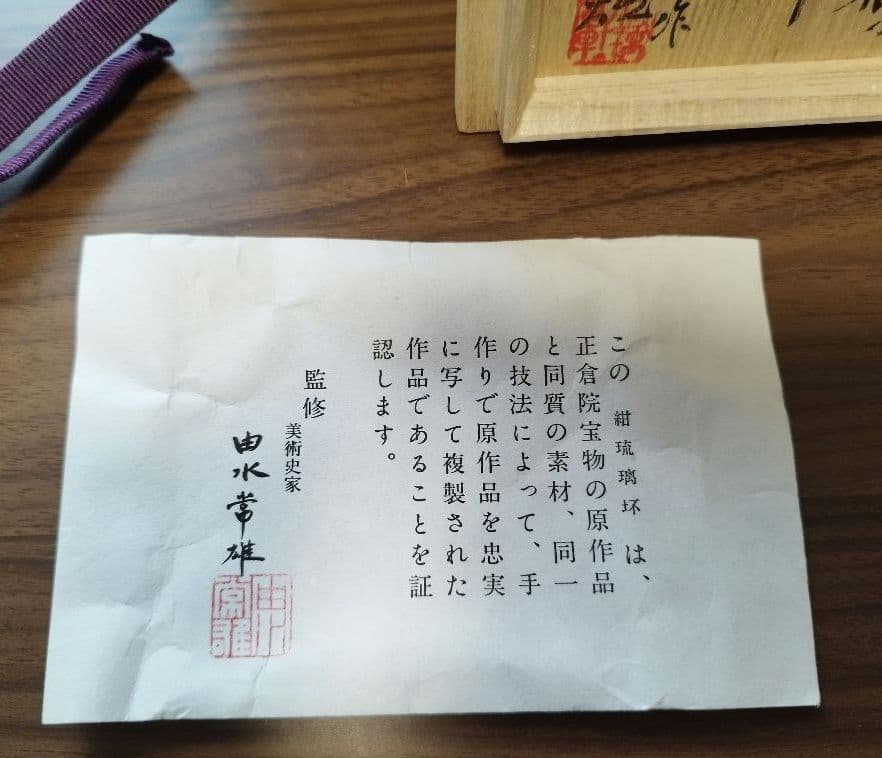 この 紺琉璃坏 は、
正倉院宝物の原作品
と同質の素材、同一
の技法によって、手
作りで原作品を忠実
に写して複製された
作品であることを証
認します。
監修 美術史家
由水常雄
作